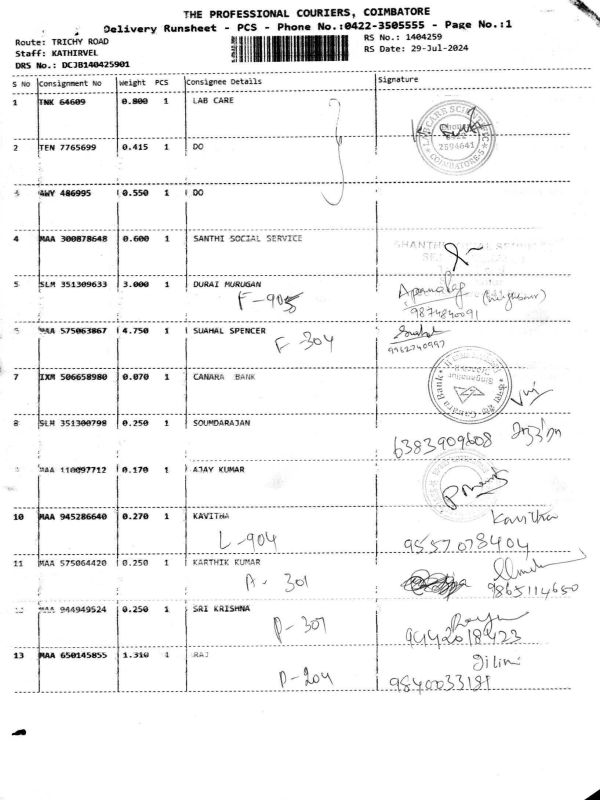 THE PROFESSIONAL COURIERS, COIMBATORE
Delivery Runsheet - PCS - Phone No.:0422-3505555 - Page No.:1
Route: TRICHY ROAD
RS No.: 1404259
Staff: KATHIRVEL
RS Date: 29-Jul-2024
DRS No.: DCJB140425901
S No Consignment No Weight PCS Consignee Details Signature
1 TNK 64609 0.800 1 LAB CARE
2594641
COIMBATORE-5
2 TEN 7765699 0.415 1 DO
3 AWY 486995 0.550 1 DO
4 MAA 300878648 0.600 1 SANTHI SOCIAL SERVICE
5 SLM 351309633 3.000 1 DURAI MURUGAN
F-905
9874840091
MAA 575063867 4.750 1 SUAHAL SPENCER
F-304
9962740997
7 IXM 506658980 0.070 1 CANARA BANK
Canara Bank
8 SLM 351300798 0.250 1 SOUMDARAJAN
6383909608
MAA 110097712 0.170 1 AJAY KUMAR
10 MAA 945286640 0.270 1 KAVITHA
Kavitha
L-904
9557078404
11 MAA 575064420 0.250 1 KARTHIK KUMAR
A-301
9865114650
MAA 944949524 0.250 1 SRI KRISHNA
P-307
9442018423
13 MAA 650145855 1.310 1 RAJ
D-204
9840033181